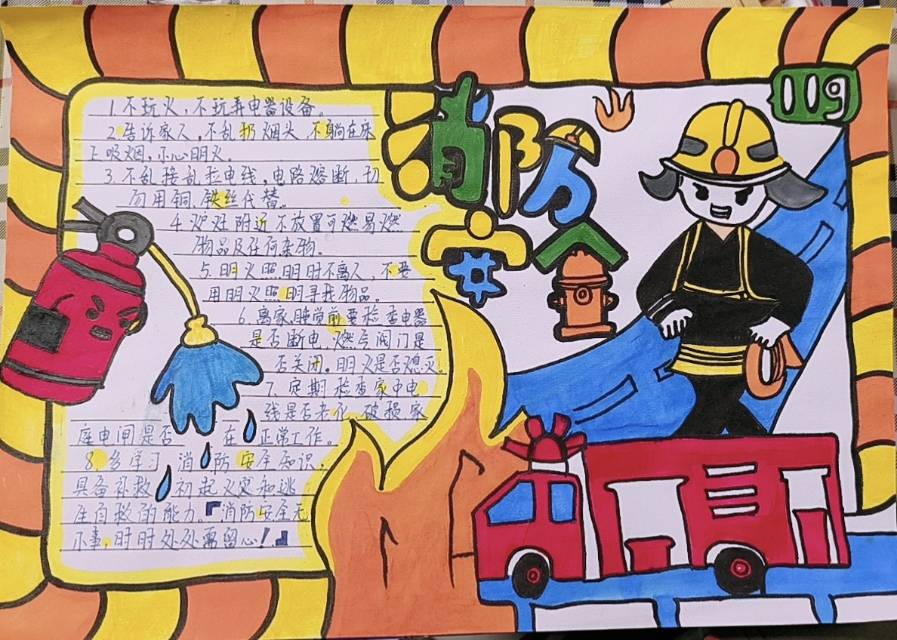 1.不玩火,不玩弄电器设备。
2.告诉家人,不乱扔烟头,不躺在床
上吸烟,小心明火。
3.不乱接乱拉电线,电路熔断,切
勿用铜、铁丝代替。
4.炉灶附近不放置可燃易燃
物品及任何杂物。
5.明火照明时不离人,不要
用明火照明寻找物品。
6.离家、睡觉前要检查电器
是否断电,燃气阀门是
否关闭。明火是否熄灭。
7.定期检查家中电
线是否老化、破损家
庭电闸是否在正常工作。
8.多学习消防安全知识,
具备补救初起火灾和逃
生自救的能力。「消防安全无
小事,时时处处需留心!」
消防安全
119